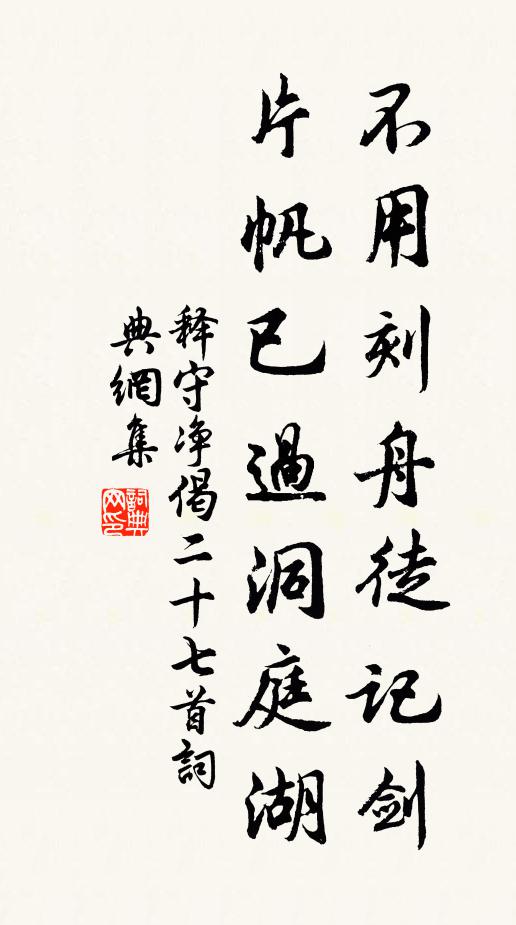 不用刻舟徒记剑
片帆已過洞庭湖
释守净偈二十七首詞
典網集
詞典网印